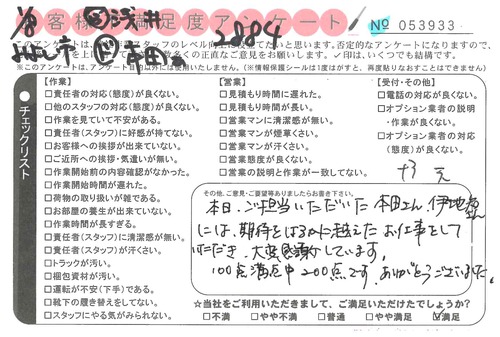 お客様満足度アンケート
No 053933
2004
1/8 浅井
本田
このアンケートは、
スタッフのレベル向上に役立てたいと思います。否定的なアンケートになりますので、
素直なご意見をお願いします。✓印は、いくつでも結構です。
※このアンケートは、アンケート目的以外には使用いたしません。(※情報保護シールは1度はがすと、再度貼りなおすことはできません)
チェックリスト
【作業】
□責任者の対応(態度)が良くない。
□他のスタッフの対応(態度)が良くない。
□作業を見ていて不安がある。
□責任者(スタッフ)に好感が持てない。
□お客様への挨拶が出来ていない。
□ご近所への挨拶・気遣いが無い。
□作業開始前の内容確認がなかった。
□作業開始時間が遅れた。
□荷物の取り扱いが雑である。
□お部屋の養生が出来ていない。
□作業時間が長すぎる。
□責任者(スタッフ)に清潔感が無い。
□責任者(スタッフ)が汗くさい。
□トラックが汚い。
□梱包資材が汚い。
□運転が不安(下手)である。
□靴下の履き替えをしてない。
□スタッフにやる気がみられない。
【営業】
□見積もり時間に遅れた。
□見積もり時間が長い。
□営業マンに清潔感が無い。
□営業マンが煙草くさい。
□営業マンが汗くさい。
□営業態度が良くない。
□営業の説明と作業が一致してない。
【受付・その他】
□電話の対応が良くない。
□オプション業者の説明
・作業が良くない。
□オプション業者の対応
(態度)が良くない。
その他、ご意見・ご要望等ありましたらお書き下さい。
本日、ご担当いただいた本田さん、伊地
さん
には、期待をはるかに越えたお仕事をして
いただき、大変感謝しています。
100点満点中200点です。ありがとうございました。
☆当社をご利用いただきまして、ご満足いただけたでしょうか?
□不満 □やや不満 □普通 □やや満足 ☑満足